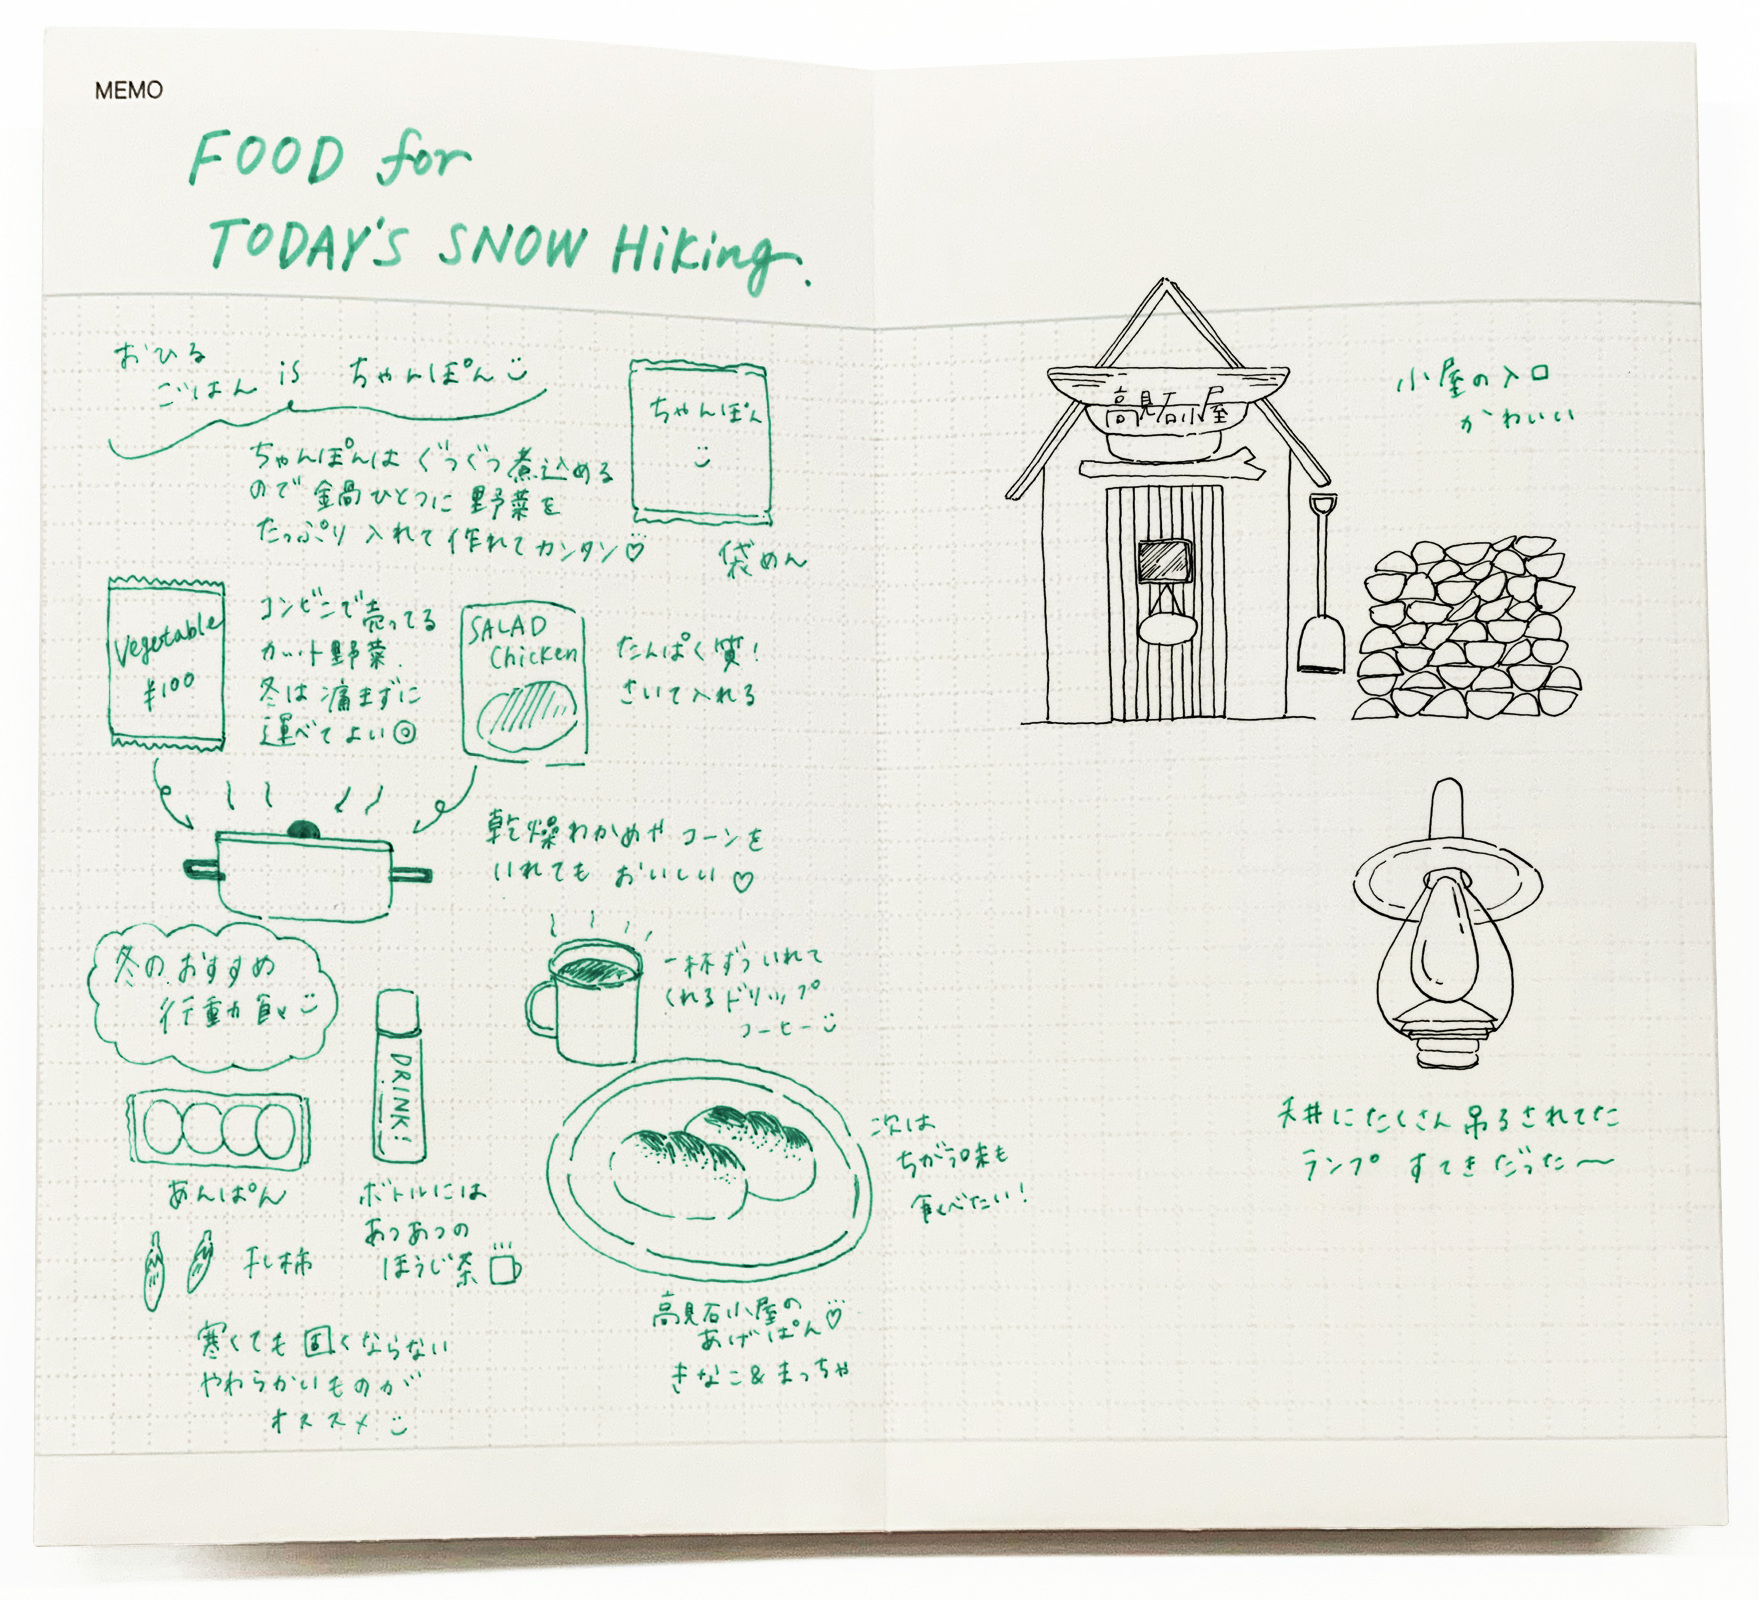 MEMO
FOOD for
TODAY'S SNOW Hiking.
おひる
ごはん is ちゃんぽん
ちゃんぽん
ちゃんぽんは ぐつぐつ煮込める
ので 鍋ひとつに 野菜を
たっぷり 入れて 作れてカンタン♡
袋めん
Vegetable
¥100
コンビニで売ってる
カット野菜.
冬は 痛まずに
運べてよい◎
SALAD
Chicken
たんぱく質!
さいて入れる
乾燥わかめや コーンを
いれても おいしい♡
冬の おすすめ
行動食
DRINK!
一杯ずついれて
くれるドリップ
コーヒー
あんぱん
干し柿
ボトルには
あつあつの
ほうじ茶
寒くても 固くならない
やわらかいものが
オススメ
次は
ちがう味も
食べたい!
高見石小屋の
あげぱん♡
きなこ&まっちゃ
高見石小屋
小屋の入口
かわいい
天井にたくさん 吊るされてた
ランプ すてきだった〜